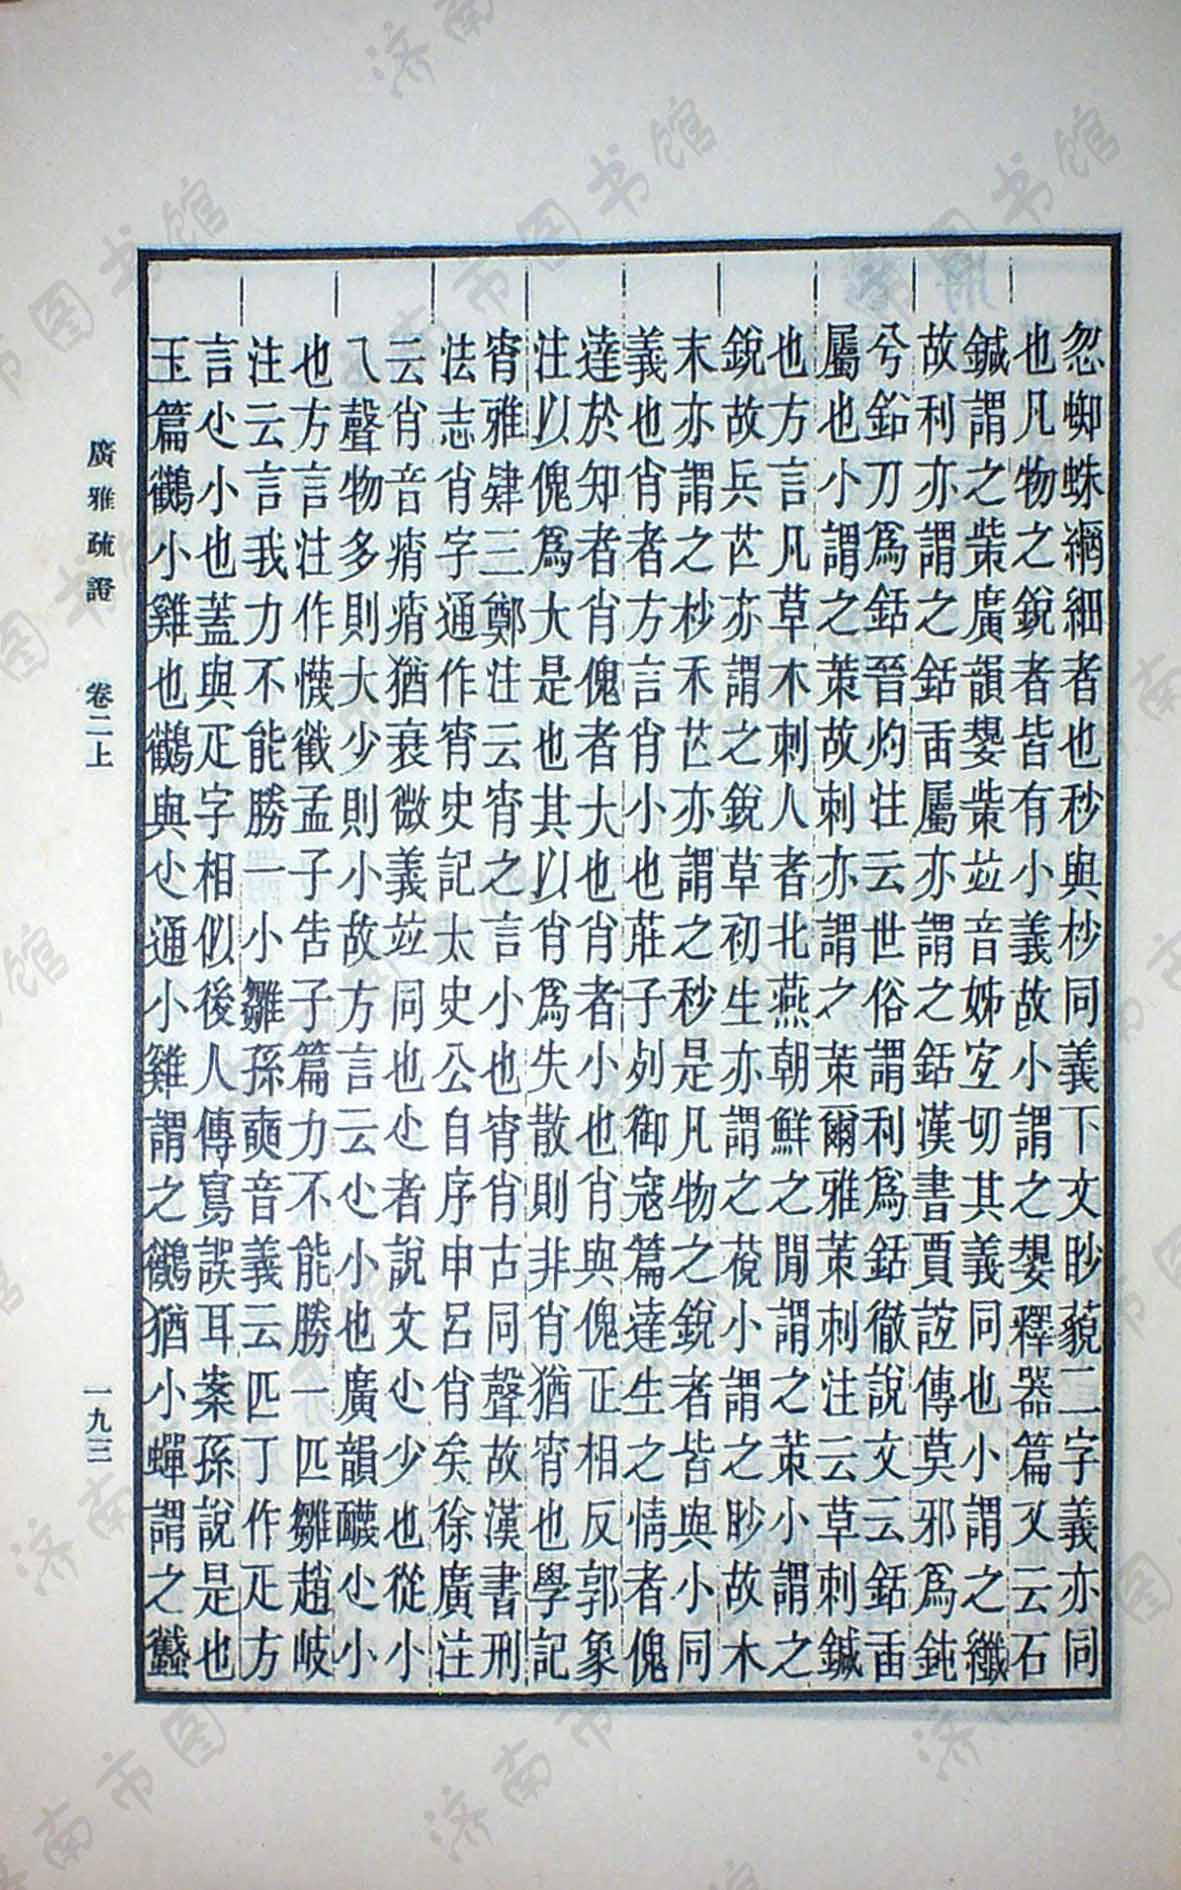 忽蜘蛛網細者也秒與杪同義下文眇藐二字義亦同
也凡物之銳者皆有小義故小謂之嫢釋器篇又云石
鍼謂之㭰廣韻嫢㭰竝音姊宐切其義同也小謂之纖
故利亦謂之銛臿屬亦謂之銛漢書賈誼傳莫邪爲鈍
兮鉛刀爲銛晉灼注云世俗謂利爲銛徹說文云銛臿
屬也小謂之茦故刺亦謂之茦爾雅茦刺注云草刺鍼
也方言凡草木刺人者北燕朝鮮之閒謂之茦小謂之
銳故兵芒亦謂之銳草初生亦謂之莌小謂之眇故木
末亦謂之杪禾芒亦謂之秒是凡物之銳者皆與小同
義也肖者方言肖小也莊子列御寇篇達生之情者傀
達於知者肖傀者大也肖者小也肖與傀正相反郭象
注以傀爲大是也其以肖爲失散則非肖猶宵也學記
宵雅肄三鄭注云宵之言小也宵肖古同聲故漢書刑
法志肖字通作宵史記太史公自序申呂肖矣徐廣注
云肖音痟痟猶衰微義竝同也尐者說文尐少也從小
乁聲物多則大少則小故方言云尐小也廣韻尐小
也方言注作懱截孟子告子篇力不能勝一匹雛趙岐
注云言我力不能勝一小雛孫奭音義云匹丁作疋方
言尐小也蓋與疋字相似後人傳寫誤耳案孫說是也
玉篇小雞也與尐通小雞謂之猶小蟬謂之蠽
廣雅疏證 卷二上 一九三